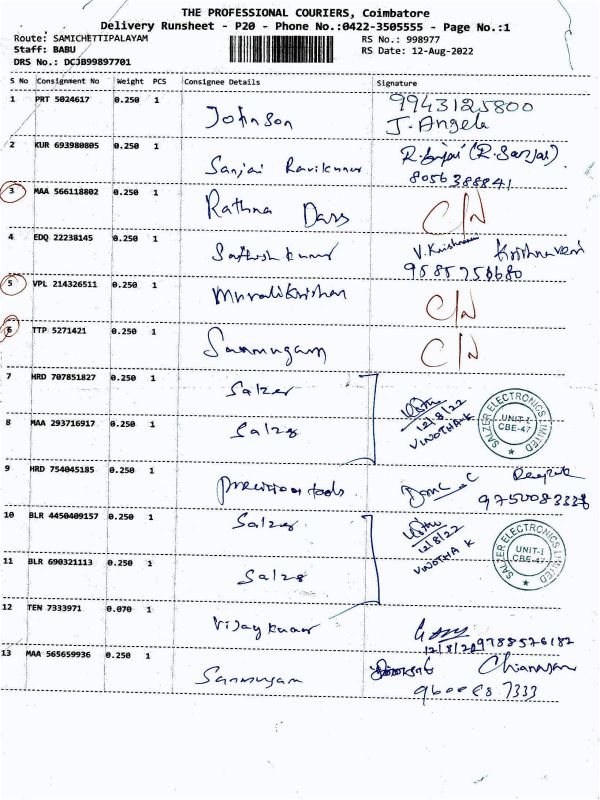 THE PROFESSIONAL COURIERS, Coimbatore
Delivery Runsheet - P20 - Phone No.:0422-3505555 - Page No.:1
Route: SAMICHETTIPALAYAM RS No.: 998977
Staff: BABU RS Date: 12-Aug-2022
DRS No.: DCJB99897701
S No Consignment No Weight PCS Consignee Details Signature
1 PRT 5024617 0.250 1 Johnson 9943125800
J. Angela
2 KUR 693980805 0.250 1 Sanjai Ravikumar (R. Sanjai)
8056388841
3 MAA 566118802 0.250 1 Rathna Dass C/N
4 EDQ 22238145 0.250 1 Sathish kumar V. Krishnaveni Krishnaveni
9585756680
5 VPL 214326511 0.250 1 Muralikrishan C/N
6 TTP 5271421 0.250 1 Sanmugam C/N
7 HRD 707851827 0.250 1 Salzer
12/8/22
VINOTHA K
SALZER ELECTRONICS LIMITED
UNIT-I
CBE-47
8 MAA 293716917 0.250 1 Salzer
9 HRD 754045185 0.250 1 precision tools Deepak
9750083328
10 BLR 4450409157 0.250 1 Salzer
12/8/22
VINOTHA K
SALZER ELECTRONICS LIMITED
UNIT-I
CBE-47
11 BLR 690321113 0.250 1 Salzer
12 TEN 7333971 0.070 1 Vijay kumar
12/8/22 9788576182
13 MAA 565659936 0.250 1 Sanmugam